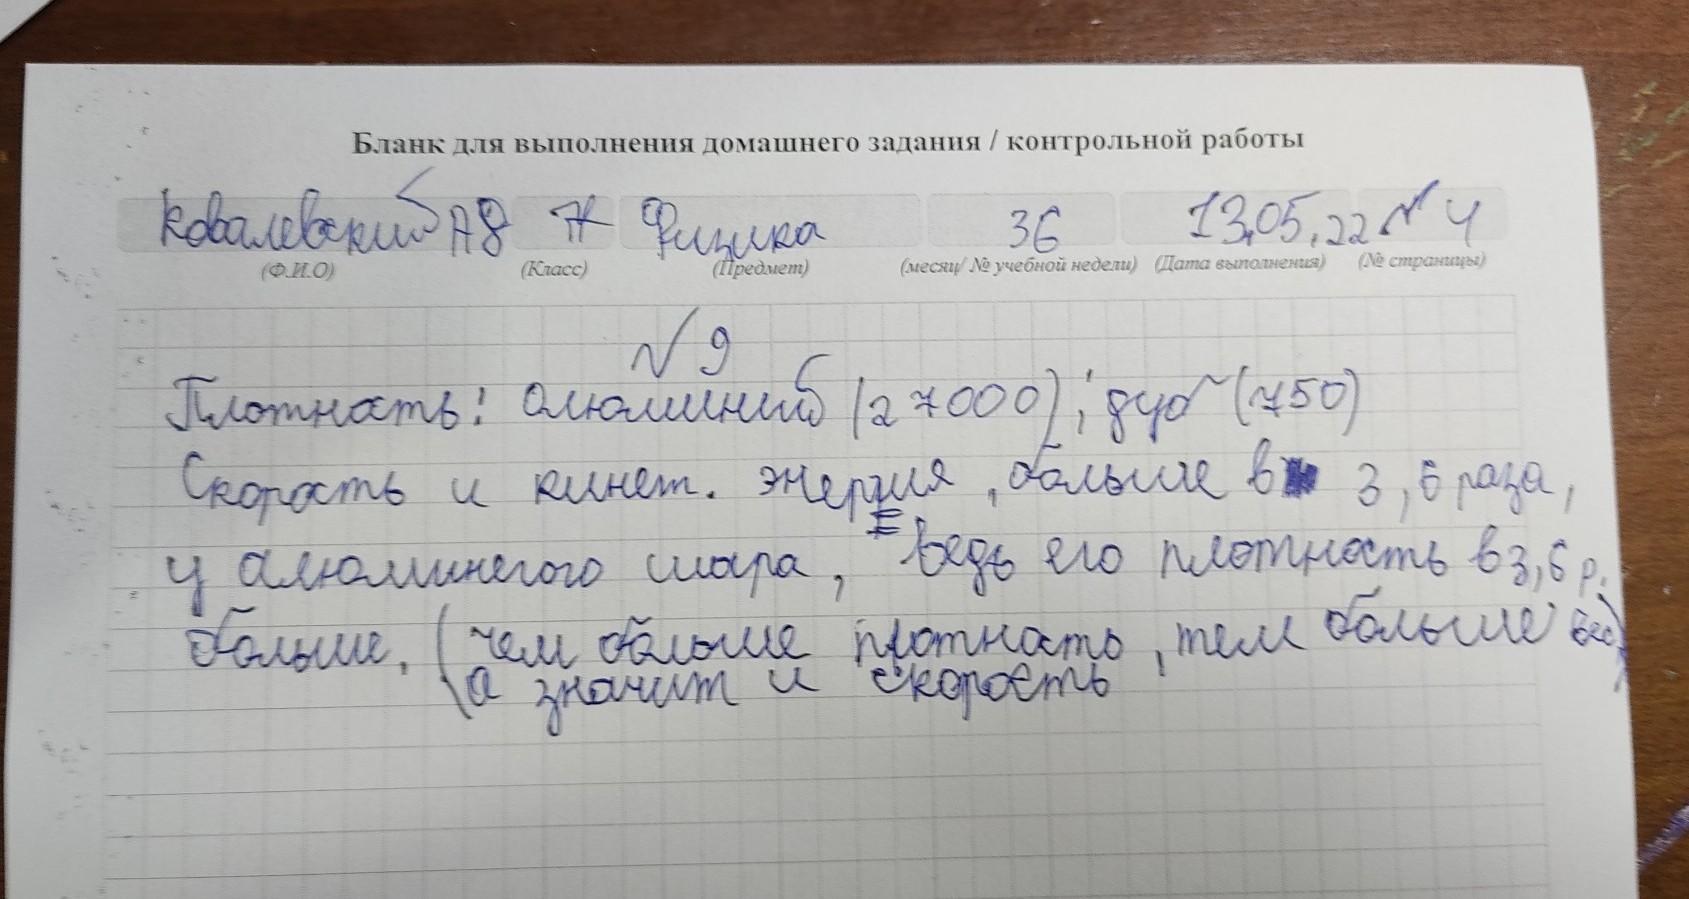 Бланк для выполнения домашнего задания / контрольной работы
Ковалевский АД 7К Физика 36 13.05.22 № 4
(Ф.И.О) (Класс) (Предмет) (месяц/ № учебной недели) (Дата выполнения) (№ страницы)
№ 9
Плотность: алюминий (27000); дуб (750)
Скорость и кинет. энергия, больше в 3,6 раза,
у алюминегого шара, ведь его плотность в 3,6 р.
больше, (чем больше плотность, тем больше вес)
а значит и скорость